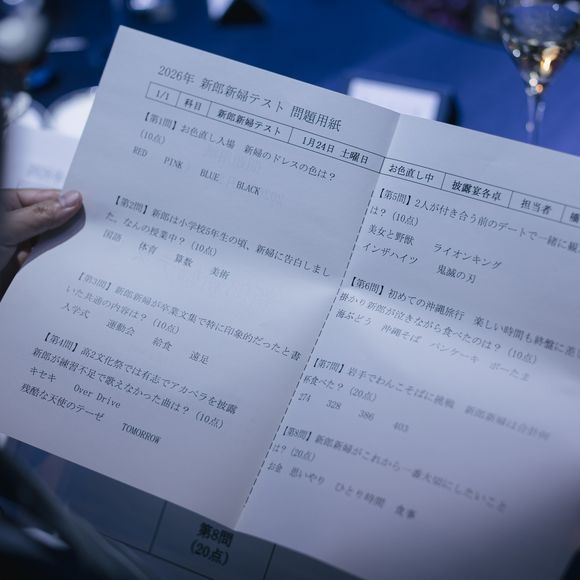 2026年 新郎新婦テスト 問題用紙
1/1 科目 新郎新婦テスト 1月24日 土曜日 お色直し中 披露宴各卓 担当者
【第1問】お色直し入場 新婦のドレスの色は?
(10点)
RED PINK BLUE BLACK
【第2問】新郎は小学校5年生の頃、新婦に告白しまし
た。なんの授業中?(10点)
国語 体育 算数 美術
【第3問】新郎新婦が卒業文集で特に印象的だったと書
いた共通の内容は?(10点)
入学式 運動会 給食 遠足
【第4問】高2文化祭では有志でアカペラを披露
新郎が練習不足で歌えなかった曲は?(10点)
キセキ Over Drive
残酷な天使のテーゼ TOMORROW
【第5問】2人が付き合う前のデートで一緒に
は?(10点)
美女と野獣 ライオンキング
インザハイツ 鬼滅の刃
【第6問】初めての沖縄旅行 楽しい時間も終盤に差し
掛かり新郎が泣きながら食べたのは?(10点)
海ぶどう 沖縄そば パンケーキ ポーたま
【第7問】岩手でわんこそばに挑戦 新郎新婦は合計何
杯食べた?(20点)
274 328 386 403
【第8問】新郎新婦がこれから一番大切にしたいこと
は?(20点)
お金 思いやり ひとり時間 食事
第8問
(20点)